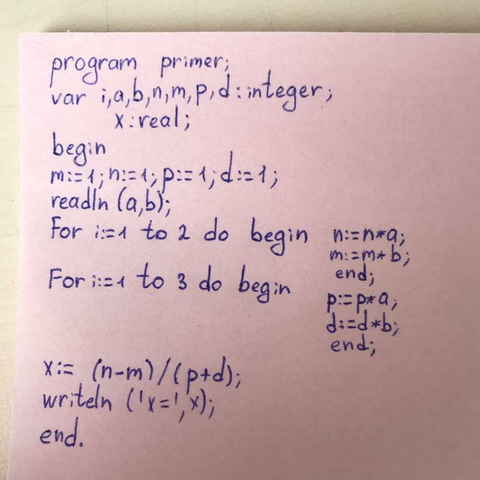 program primer;
var i,a,b,n,m,p,d:integer;
x:real;
begin
m:=1;n:=1;p:=1;d:=1;
readln (a,b);
For i:=1 to 2 do begin n:=n*a;
m:=m*b;
end;
For i:=1 to 3 do begin
p:=p*a;
d:=d*b;
end;
x:= (n-m)/(p+d);
writeln ('x=',x);
end.